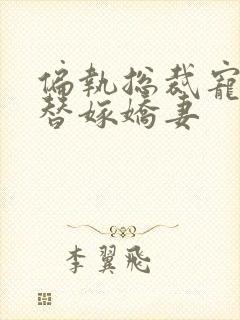 偏執總裁寵
替嫁嬌妻
李翼飛